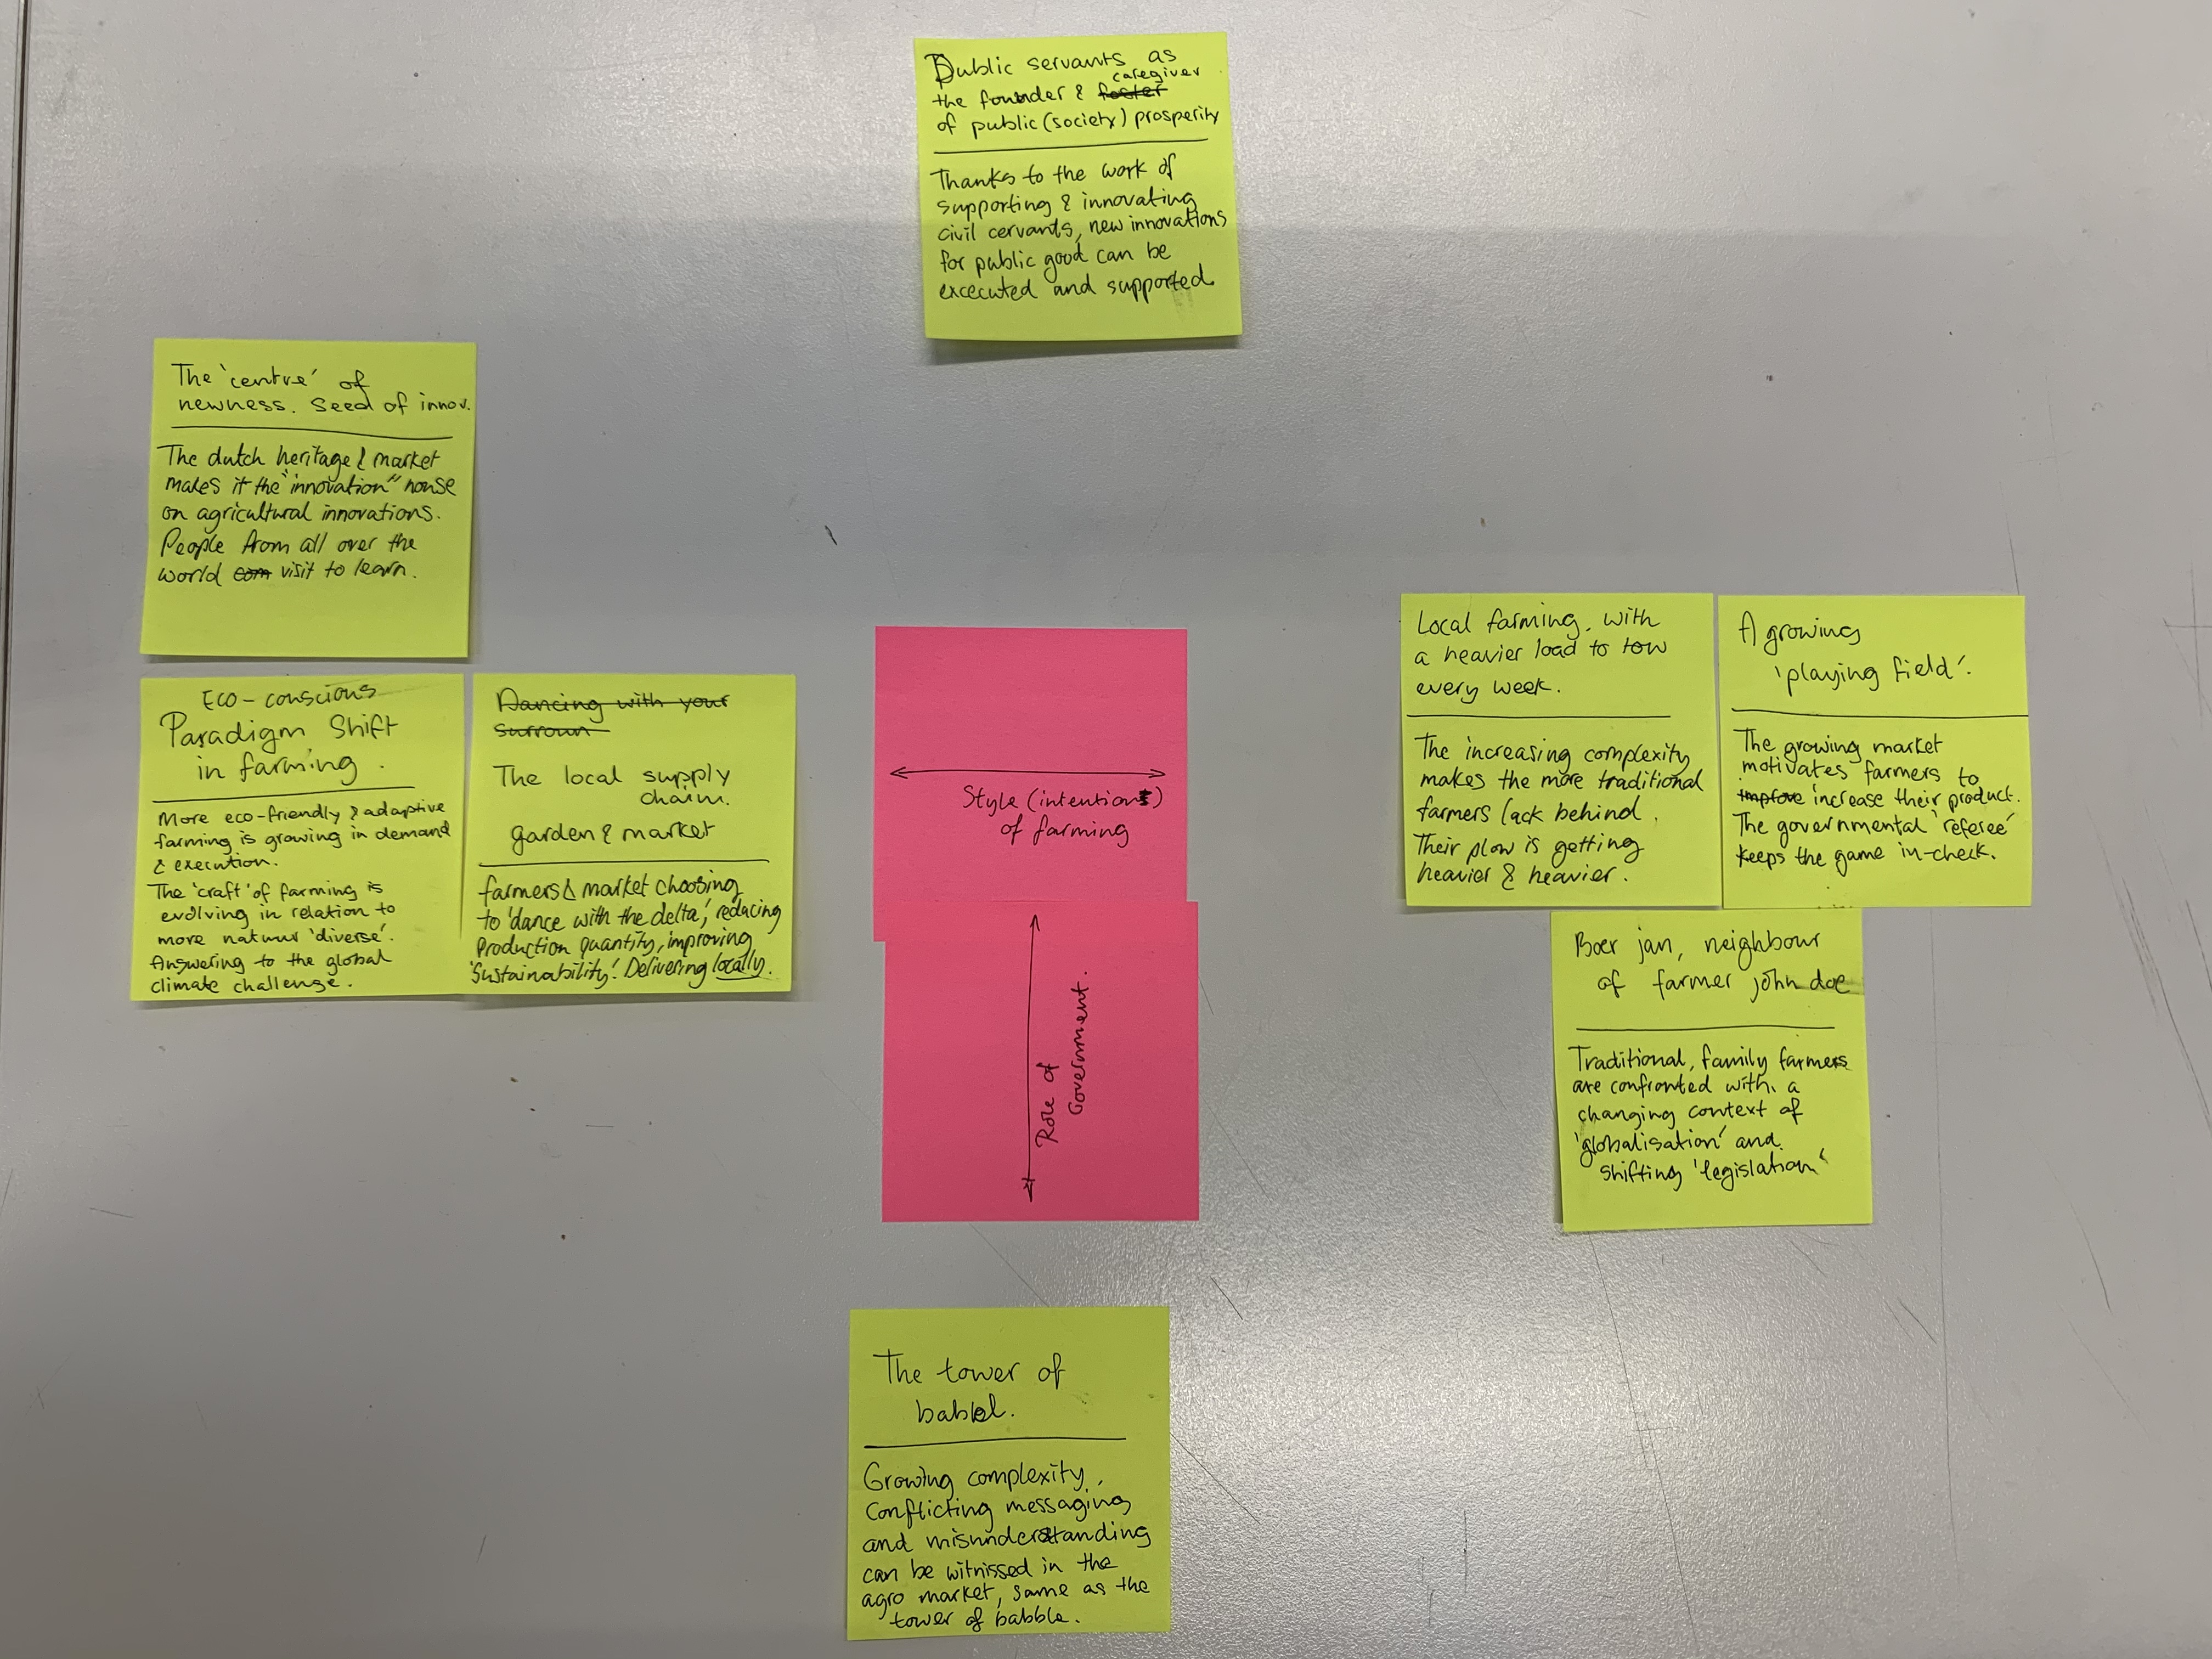 Public servants as
caregiver
the founder & foster
of public (society) prosperity
Thanks to the work of
supporting & innovating
civil cervants, new innovations
for public good can be
excecuted and supported.
The 'centre' of
newness. Seed of innov.
The dutch heritage & market
makes it the "innovation" house
on agricultural innovations.
People from all over the
world com visit to learn.
Eco-conscious
Paradigm Shift
in farming.
More eco-friendly & adaptive
farming is growing in demand
& execution.
The 'craft' of farming is
evolving in relation to
more natuur 'diverse'.
Answering to the global
climate challenge.
Dancing with your
surroun
The local supply
chain.
garden & market
farmers & market choosing
to 'dance with the delta', reducing
production quantity, improving
'sustainability'. Delivering locally.
Style (intentions)
of farming
Role of
Government.
Local farming. with
a heavier load to tow
every week.
The increasing complexity
makes the more traditional
farmers lack behind.
Their plow is getting
heavier & heavier.
A growing
'playing field'.
The growing market
motivates farmers to
improve increase their product.
The governmental 'referee'
keeps the game in-check.
Boer jan, neighbour
of farmer john doe
Traditional, family farmers
are confronted with. a
changing context of
'globalisation' and
shifting 'legislation'
The tower of
babbel.
Growing complexity,
conflicting messaging
and misunderstanding
can be witnissed in the
agro market, same as the
tower of babble.